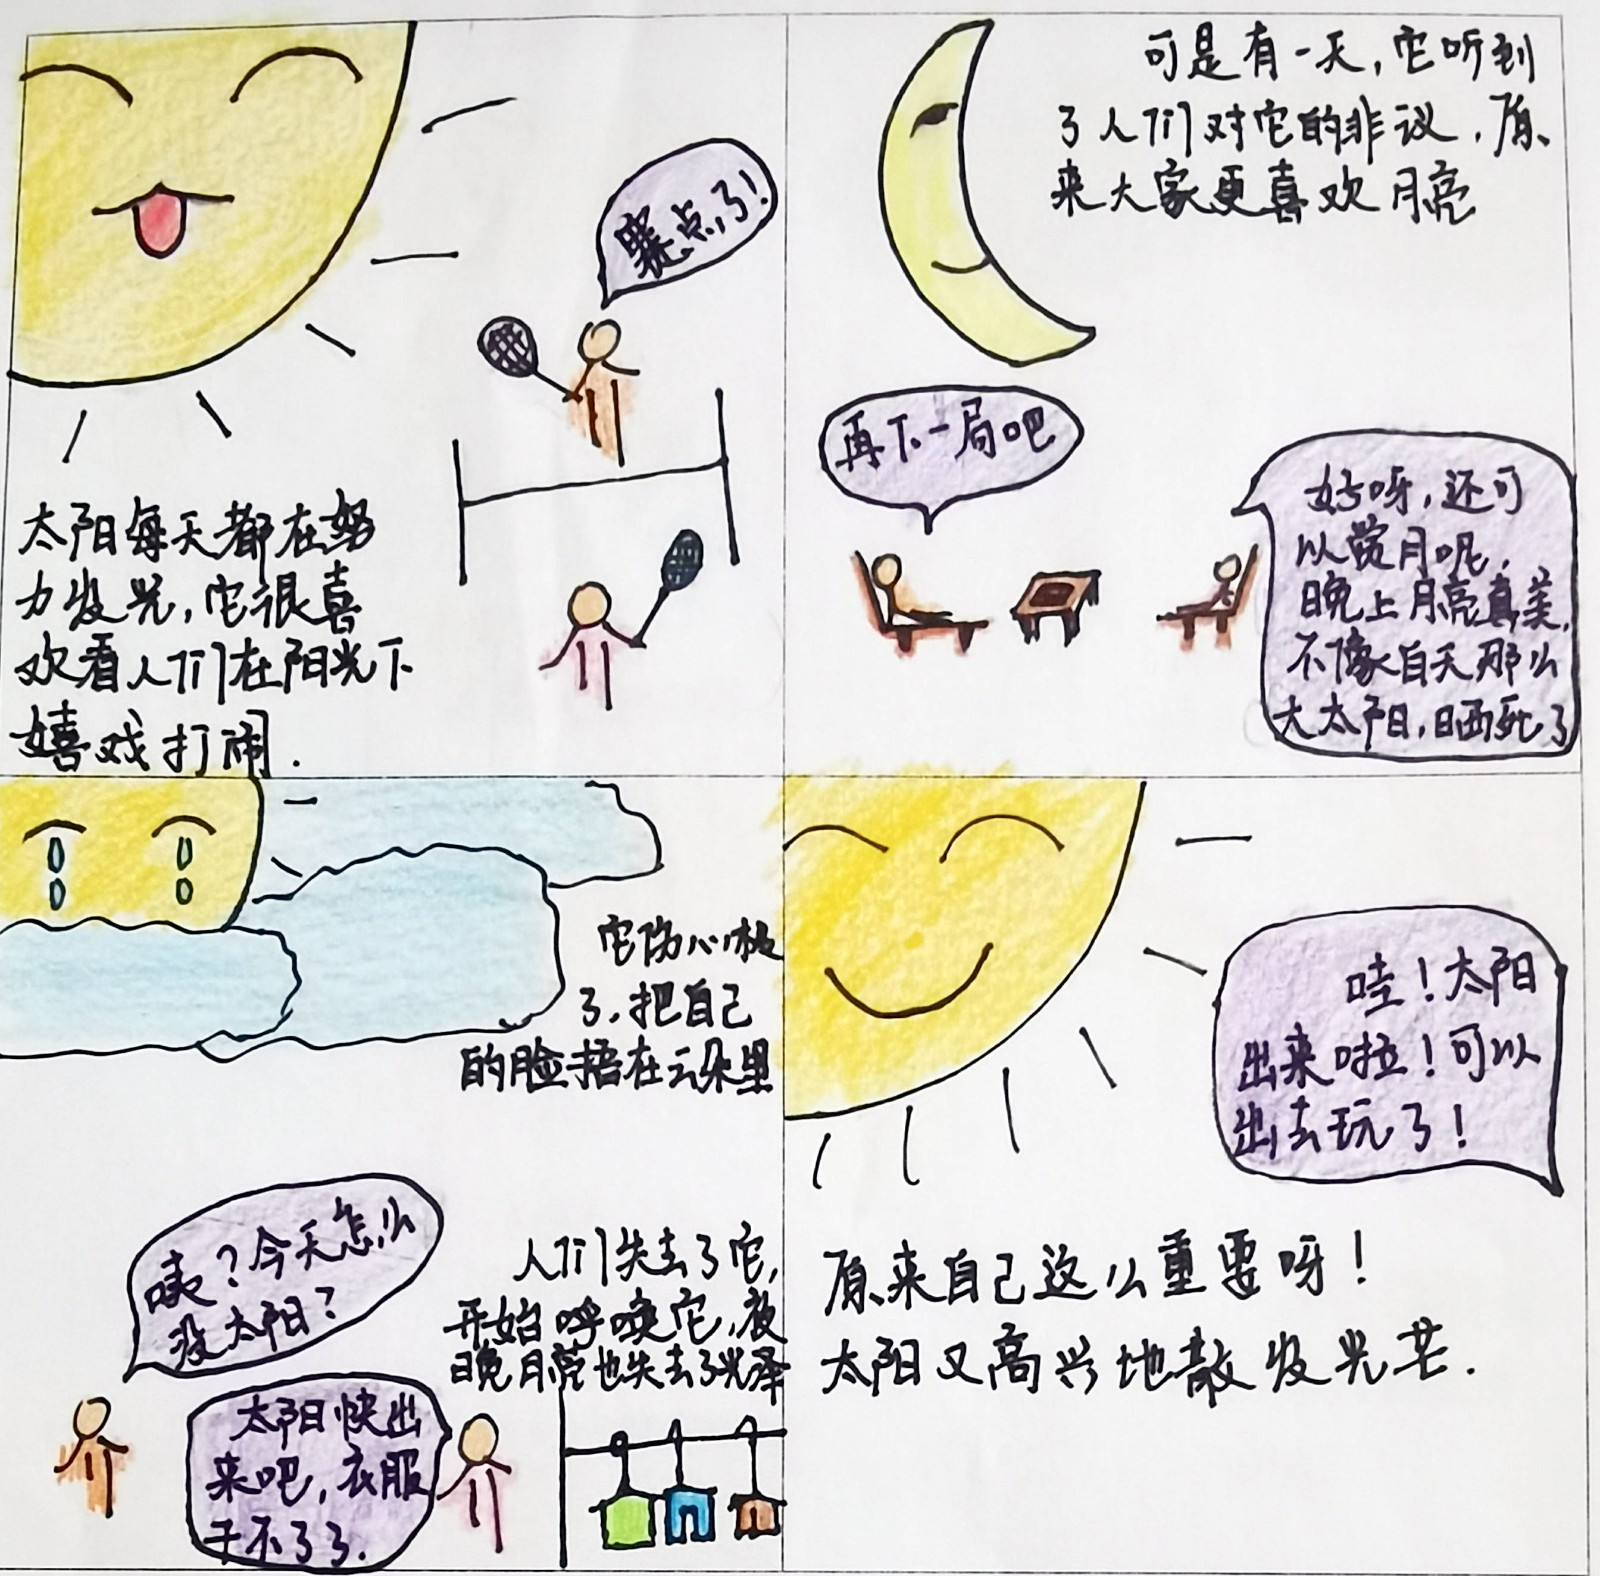 赛点了!
太阳每天都在努
力发光,它很喜
欢看人们在阳光下
嬉戏打闹.
可是有一天,它听到
了人们对它的非议,原
来大家更喜欢月亮
再下一局吧
好呀,还可
以赏月呢,
晚上月亮真美,
不像白天那么
大太阳,晒死了
它伤心极
了,把自己
的脸捂在云朵里
咦?今天怎么
没太阳?
人们失去了它,
开始呼唤它,夜
晚月亮也失去了光泽
太阳快出
来吧,衣服
干不了了.
哇!太阳
出来啦!可以
出去玩了!
原来自己这么重要呀!
太阳又高兴地散发光芒.